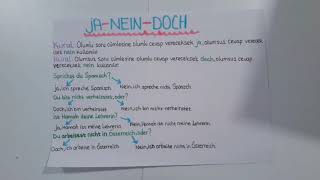 JA-NEIN-DOCH
Kural: Olumlu soru cümlesine olumlu cevap vereceksek ja, olumsuz cevap vereceksek nein kullanılır.
Kural: Olumsuz soru cümlesine olumlu cevap vereceksek doch, olumsuz cevap vereceksek nein kullanılır.
Sprichst du Spanisch?
Ja, ich spreche Spanisch. Nein, ich spreche nicht Spanisch.
Du bist nicht verheiratet, oder?
Doch, ich bin verheiratet. Nein, ich bin nicht verheiratet.
Ist Hannah deine Lehrerin?
Ja, Hannah ist meine Lehrerin. Nein, Hannah ist nicht meine Lehrerin.
Du arbeitest nicht in Österreich, oder?
Doch, ich arbeite in Österreich. Nein, ich arbeite nicht in Österreich.